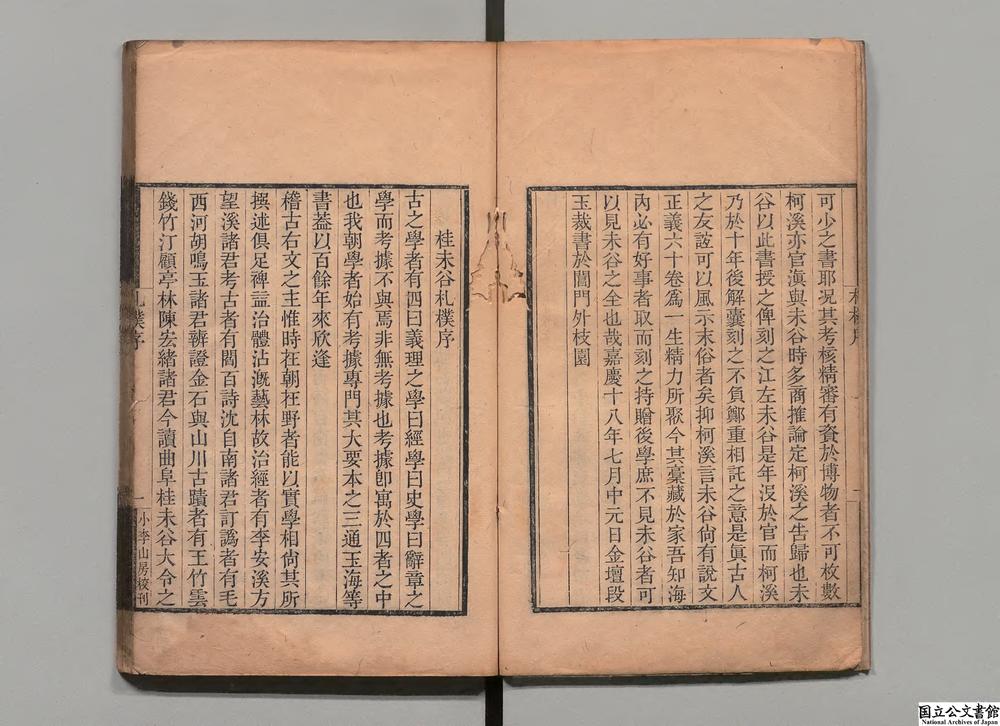 可少之書耶况其考核精審有資於博物者不可枚數
柯溪亦官滇與未谷時多商搉論定柯溪之告歸也未
谷以此書授之俾刻之江左未谷是年没於官而柯溪
乃於十年後解囊刻之不負鄭重相託之意是眞古人
之友誼可以風示末俗者矣抑柯溪言未谷尙有說文
正義六十卷爲一生精力所聚今其稾藏於家吾知海
內必有好事者取而刻之持贈後學庶不見未谷者可
以見未谷之全也哉嘉慶十八年七月中元日金壇段
玉裁書於閶門外枝園
桂未谷札樸序
古之學者有四曰義理之學曰經學曰史學曰辭章之
學而考據不與焉非無考據也考據卽寓於四者之中
也我朝學者始有考據專門其大要本之三通玉海等
書蓋以百餘年來欣逢
稽古右文之主惟時在朝在野者能以實學相尙其所
撰述俱足裨益治體沾漑藝林故治經者有李安溪方
望溪諸君考古者有閻百詩沈自南諸君訂譌者有毛
西河胡鳴玉諸君辨證金石與山川古蹟者有王竹雲
錢竹汀顧亭林陳宏緒諸君今讀曲阜桂未谷大令之
札樸序
一
小李山房校刊
国立公文書館
National Archives of Japan